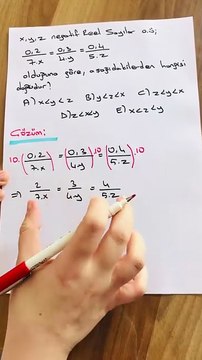 x, y, z negatif Reel Sayılar o.ü;
0,2/7.x = 0,3/4y = 0,4/5.z
olduğuna göre, aşağıdakilerden hangisi
doğrudur?
A) x<y<z B) y<z<x C) z<y<x
D) z<x<y E) x<z<y
Çözüm:
10.(0,2/7.x) = (0,3/4y)10 = (0,4/5.z)10
⇒ 2/7x = 3/4y = 4/5.z